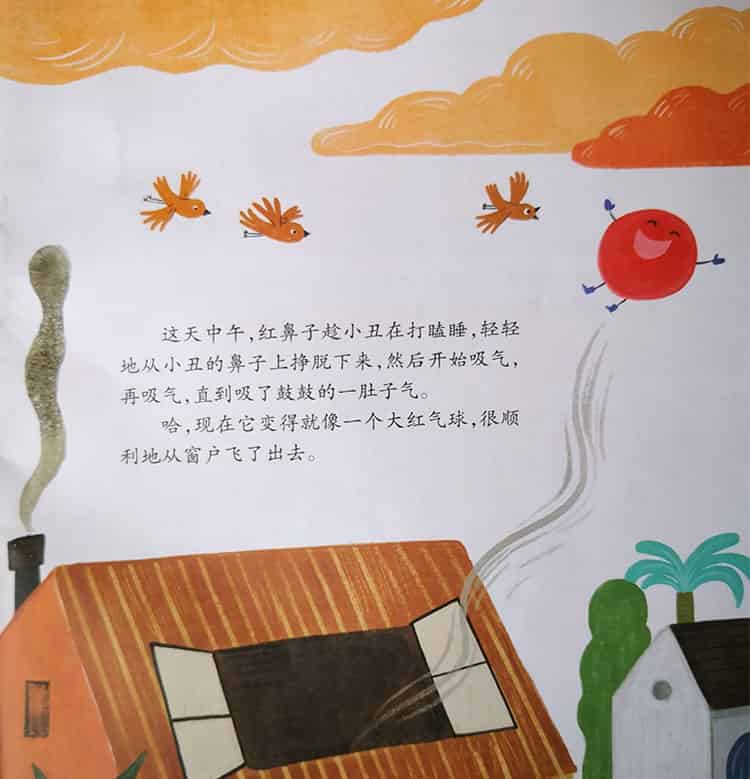 这天中午,红鼻子趁小丑在打瞌睡,轻轻
地从小丑的鼻子上挣脱下来,然后开始吸气,
再吸气,直到吸了鼓鼓的一肚子气。
哈,现在它变得就像一个大红气球,很顺
利地从窗户飞了出去。